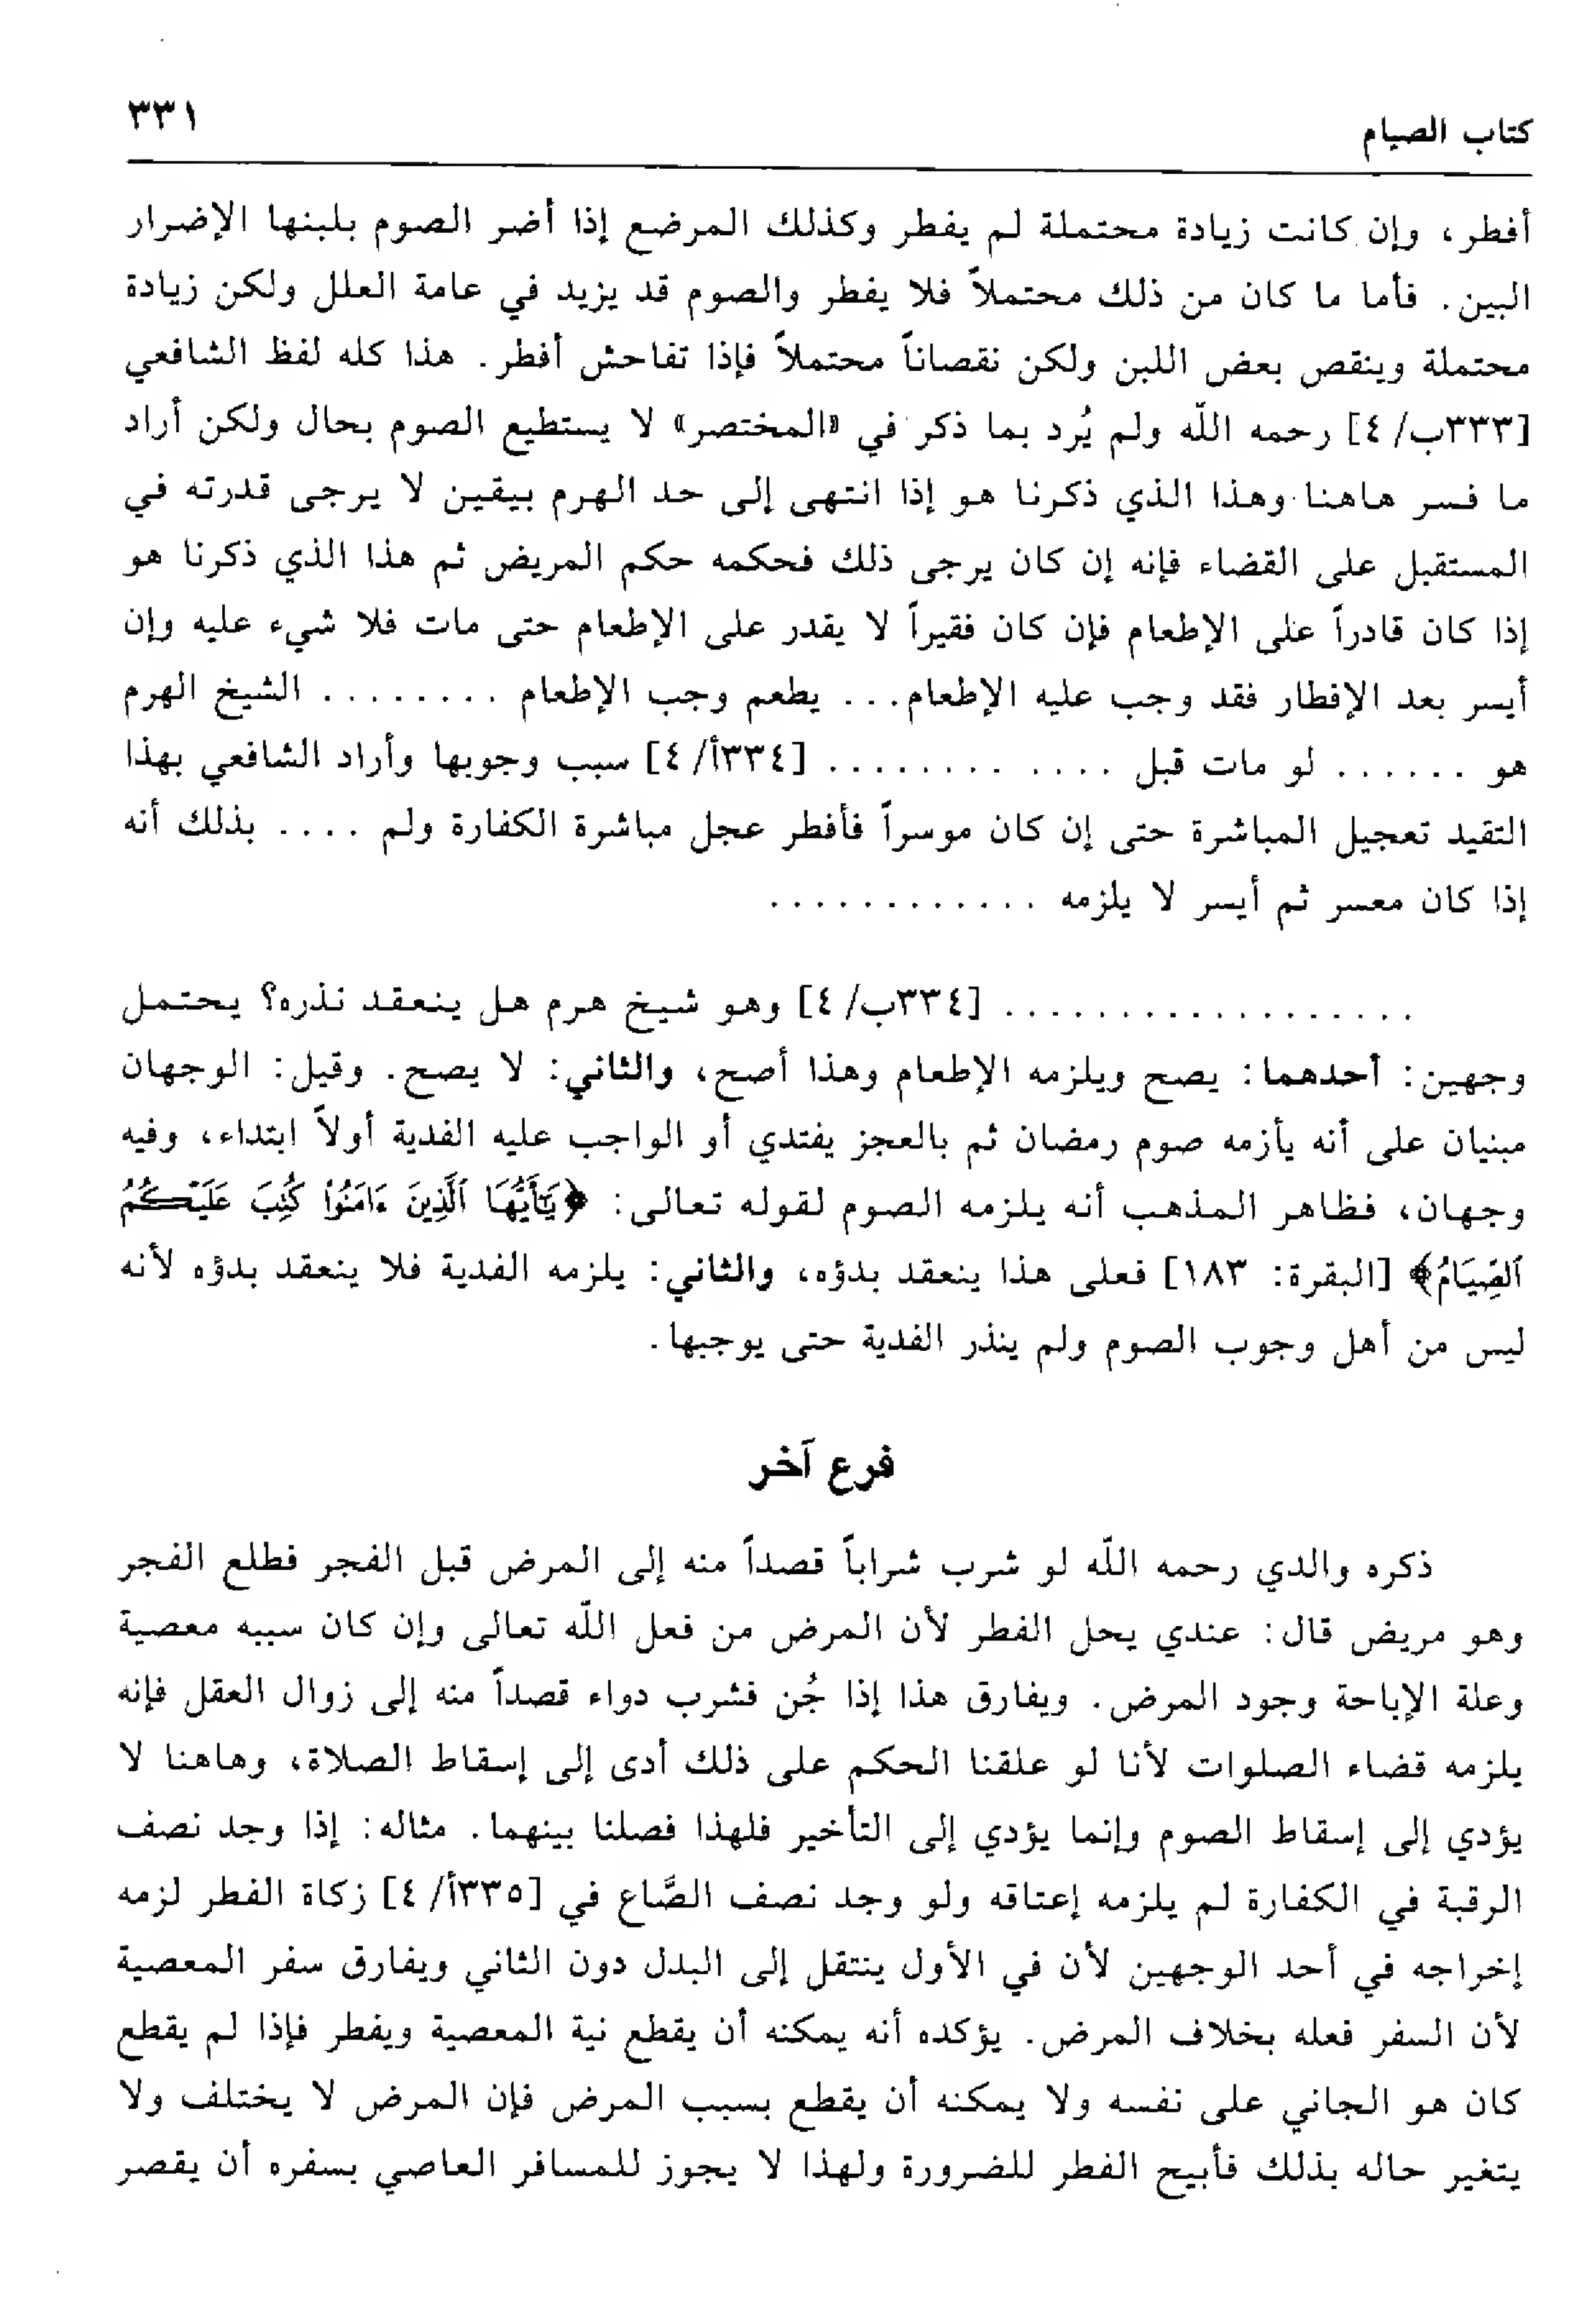 كتاب الصيام ٣٣١
أفطر، وإن كانت زيادة محتملة لم يفطر وكذلك المرضع إذا أضر الصوم بلبنها الإضرار
البين. فأما ما كان من ذلك محتملاً فلا يفطر والصوم قد يزيد في عامة العلل ولكن زيادة
محتملة وينقص بعض اللبن ولكن نقصاناً محتملاً فإذا تفاحش أفطر. هذا كله لفظ الشافعي
[٣٣٣ب/ ٤] رحمه الله ولم يُرد بما ذكر في «المختصر» لا يستطيع الصوم بحال ولكن أراد
ما فسر هاهنا وهذا الذي ذكرنا هو إذا انتهى إلى حد الهرم بيقين لا يرجى قدرته في
المستقبل على القضاء فإنه إن كان يرجى ذلك فحكمه حكم المريض ثم هذا الذي ذكرنا هو
إذا كان قادراً على الإطعام فإن كان فقيراً لا يقدر على الإطعام حتى مات فلا شيء عليه وإن
أيسر بعد الإفطار فقد وجب عليه الإطعام... يطعم وجب الإطعام ........ الشيخ الهرم
هو ...... لو مات قبل ............ [٣٣٤أ/ ٤] سبب وجوبها وأراد الشافعي بهذا
التقيد تعجيل المباشرة حتى إن كان موسراً فأفطر عجل مباشرة الكفارة ولم .... بذلك أنه
إذا كان معسر ثم أيسر لا يلزمه ............
.................. [٣٣٤ب/ ٤] وهو شيخ هرم هل ينعقد نذره؟ يحتمل
وجهين: أحدهما: يصح ويلزمه الإطعام وهذا أصح، والثاني: لا يصح. وقيل: الوجهان
مبنيان على أنه يأزمه صوم رمضان ثم بالعجز يفتدي أو الواجب عليه الفدية أولاً ابتداء، وفيه
وجهان، فظاهر المذهب أنه يلزمه الصوم لقوله تعالى: ﴿يَٰٓأَيُّهَا ٱلَّذِينَ ءَامَنُوا۟ كُتِبَ عَلَيْكُمُ
ٱلصِّيَامُ﴾ [البقرة: ١٨٣] فعلى هذا ينعقد بدؤه، والثاني: يلزمه الفدية فلا ينعقد بدؤه لأنه
ليس من أهل وجوب الصوم ولم ينذر الفدية حتى يوجبها.
فرع آخر
ذكره والدي رحمه الله لو شرب شراباً قصداً منه إلى المرض قبل الفجر فطلع الفجر
وهو مريض قال: عندي يحل الفطر لأن المرض من فعل الله تعالى وإن كان سببه معصية
وعلة الإباحة وجود المرض. ويفارق هذا إذا جُن فشرب دواء قصداً منه إلى زوال العقل فإنه
يلزمه قضاء الصلوات لأنا لو علقنا الحكم على ذلك أدى إلى إسقاط الصلاة، وهاهنا لا
يؤدي إلى إسقاط الصوم وإنما يؤدي إلى التأخير فلهذا فصلنا بينهما. مثاله: إذا وجد نصف
الرقبة في الكفارة لم يلزمه إعتاقه ولو وجد نصف الصَّاع في [٣٣٥أ/ ٤] زكاة الفطر لزمه
إخراجه في أحد الوجهين لأن في الأول ينتقل إلى البدل دون الثاني ويفارق سفر المعصية
لأن السفر فعله بخلاف المرض. يؤكده أنه يمكنه أن يقطع نية المعصية ويفطر فإذا لم يقطع
كان هو الجاني على نفسه ولا يمكنه أن يقطع بسبب المرض فإن المرض لا يختلف ولا
يتغير حاله بذلك فأبيح الفطر للضرورة ولهذا لا يجوز للمسافر العاصي بسفره أن يقصر